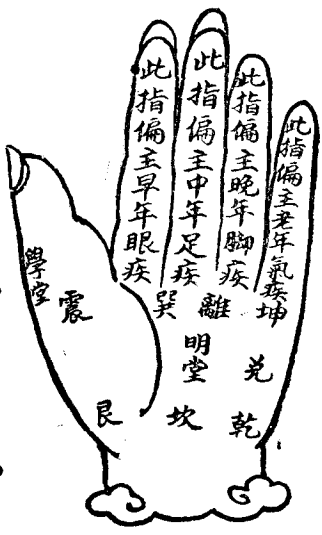 此指偏主早年眼疾
此指偏主中年足疾
此指偏主晚年腳疾
此指偏主老年氣疾
學堂
震
巽
離
坤
明堂
兌
艮
坎
乾